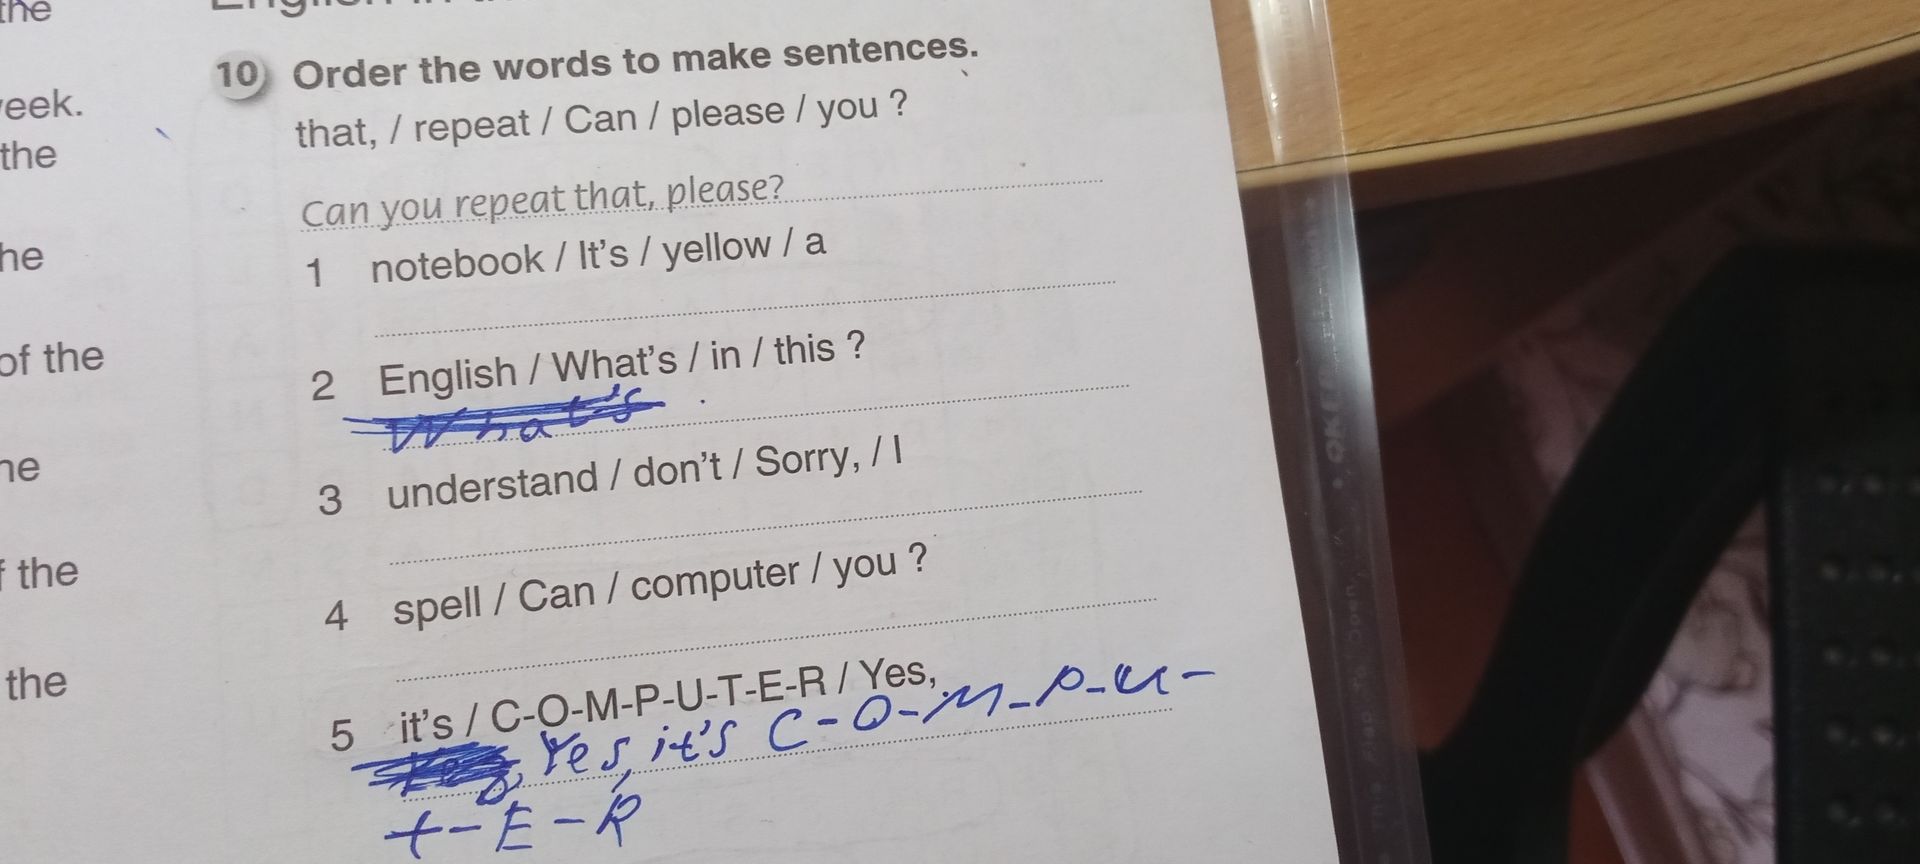 the
10 Order the words to make sentences.
that, / repeat / Can / please / you ?
Can you repeat that, please?
1 notebook / It's / yellow / a
2 English / What's / in / this ?
What's
3 understand / don't / Sorry, / I
4 spell / Can / computer / you ?
5 it's / C-O-M-P-U-T-E-R / Yes,
Yes, it's C-O-M-P-U-
T-E-R
eek.
the
he
of the
he
the
the